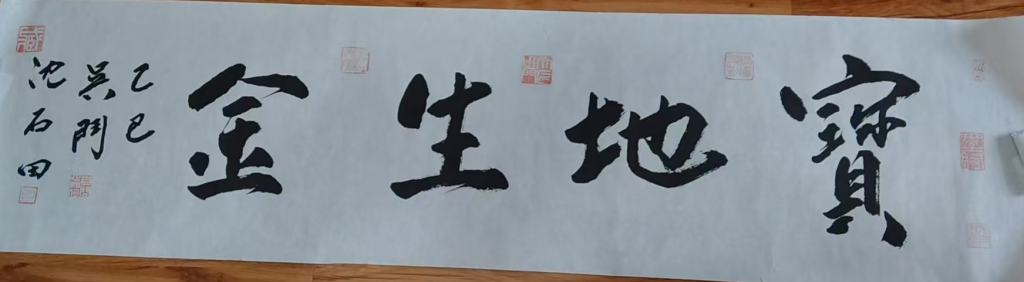 寶地生金
乙巳
吳門
沈石田